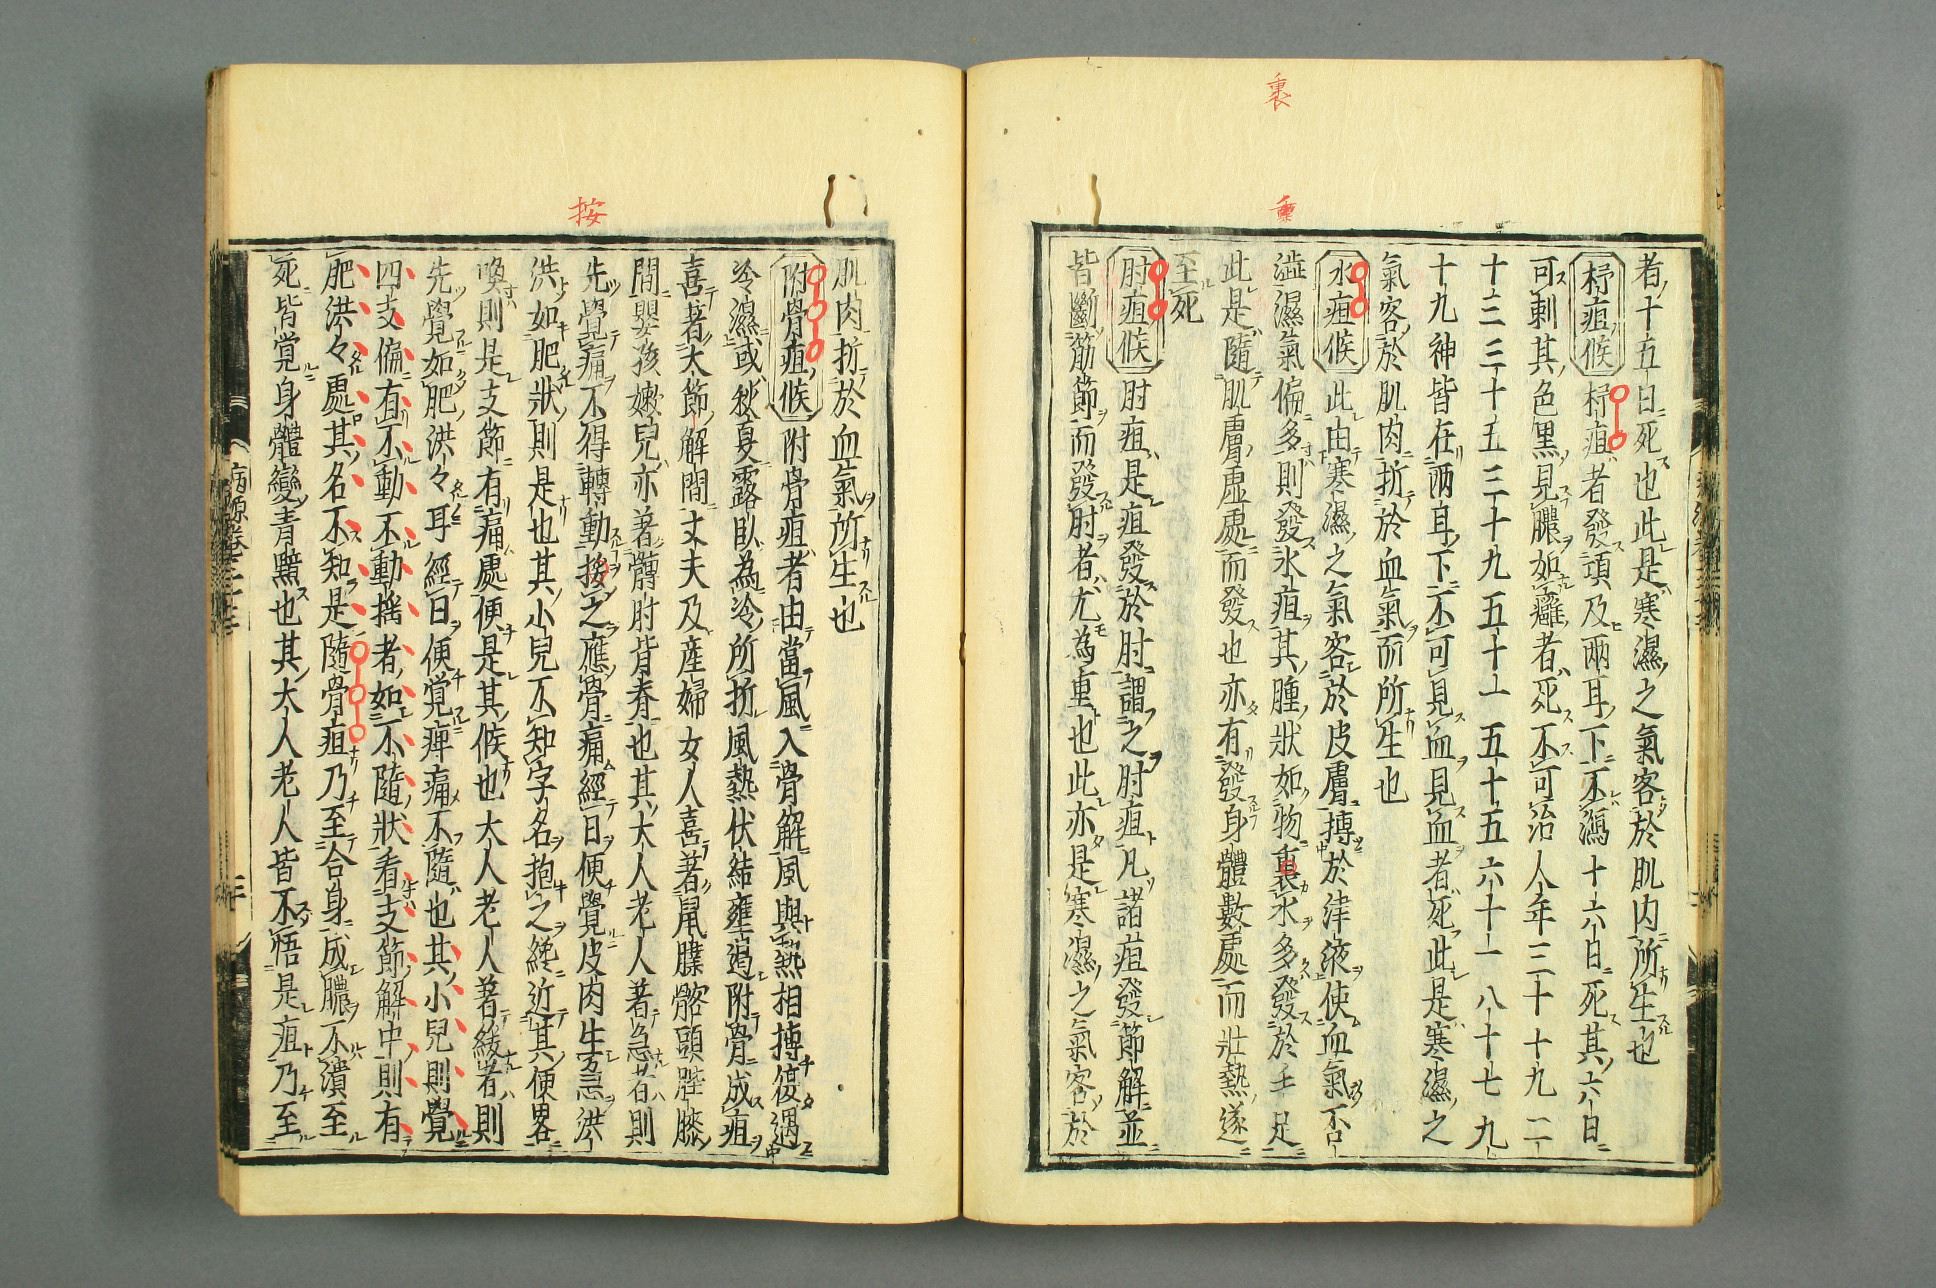 裹
重
者十五日死也此是寒濕之氣客於肌肉所生也
杼疽候 杼疽者發頭及兩耳下不瀉十六日死其六日
可刺其色黑見膿如癰者死不可治人年三十十九二
十三三十五三十九五十一五十五六十一八十七九
十九神皆在兩耳下不可見血見血者死此是寒濕之
氣客於肌肉折於血氣而所生也
水疽候 此由寒濕之氣客於皮膚搏於津液使血氣否
澁濕氣偏多則發水疽其腫狀如物裹水多發於手足
此是隨肌膚虛處而發也亦有發身體數處而壯熱遂
至死
肘疽候 肘疽是疽發於肘謂之肘疽凡諸疽發節解並
皆斷筋節而發肘者尤為重也此亦是寒濕之氣客於
按
肌肉折於血氣所生也
附骨疽候 附骨疽者由當風入骨解風與熱相搏復遇
冷濕或秋夏露臥為冷所折風熱伏結壅遏附骨成疽
喜著大節解間丈夫及產婦女人喜著鼠䐐髂頭䏶膝
間嬰孩嫩兒亦著髆肘背脊也其大人老人著急者則
先覺痛不得轉動按之應骨痛經日便覺皮肉生急洪
洪如肥狀則是也其小兒不知字名抱之纔近其便畧
喚則是支節有痛處便是其候也大人老人著緩者則
先覺如肥洪々耳經日便覺痺痛不隨也其小兒則覺
四支偏有不動不動搖者如不隨狀看支節解中則有
肥洪々處其名不知是隨骨疽乃至合身成膿不潰至
死皆覺身體變青黯也其大人老人皆不悟是疽乃至
病源卷三十三
三